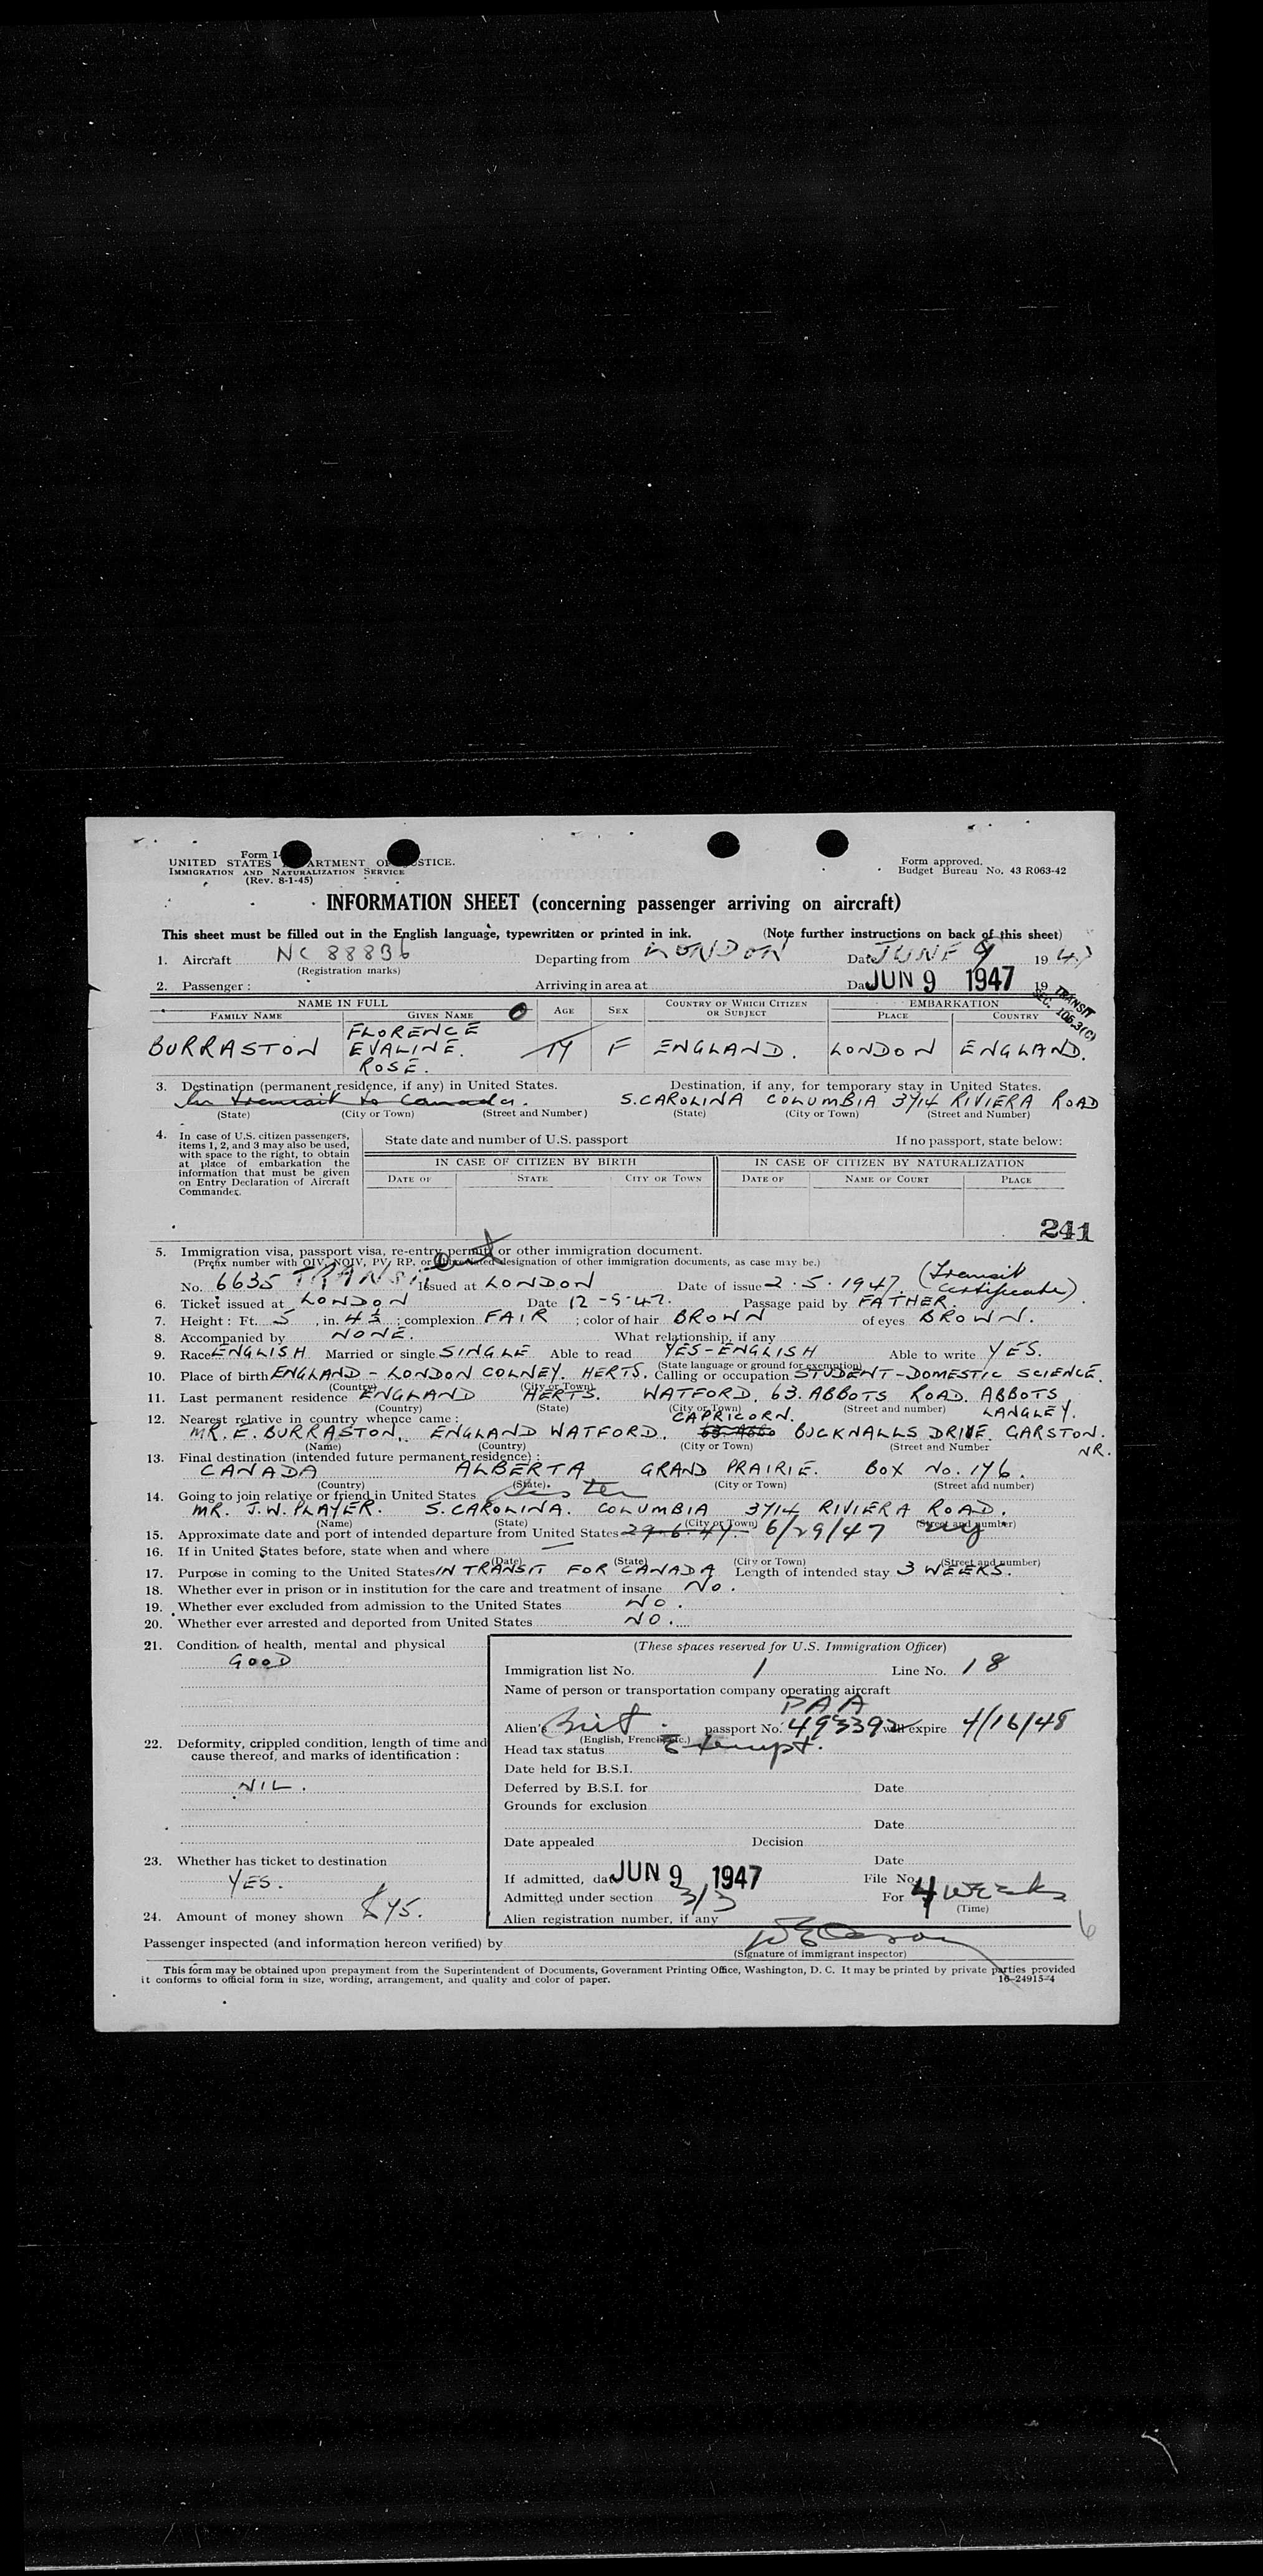 Form I-
UNITED STATES DEPARTMENT OF JUSTICE.
IMMIGRATION AND NATURALIZATION SERVICE
(Rev. 8-1-45)
Form approved.
Budget Bureau No. 43 R063-42
INFORMATION SHEET (concerning passenger arriving on aircraft)
This sheet must be filled out in the English language, typewritten or printed in ink. (Note further instructions on back of this sheet)
1. Aircraft NC 88836 Departing from LONDON Date JUNE 9 1947
(Registration marks)
2. Passenger : Arriving in area at Date JUN 9 1947 19
TRANSIT
SEC. 106.3(C)
NAME IN FULL AGE SEX COUNTRY OF WHICH CITIZEN OR SUBJECT EMBARKATION
FAMILY NAME GIVEN NAME PLACE COUNTRY
BURRASTON FLORENCE EVALINE. ROSE. F ENGLAND. LONDON ENGLAND.
3. Destination (permanent residence, if any) in United States. Destination, if any, for temporary stay in United States.
In transit to Canada. S.CAROLINA COLUMBIA 3714 RIVIERA ROAD
(State) (City or Town) (Street and Number) (State) (City or Town) (Street and Number)
4. In case of U.S. citizen passengers, items 1, 2, and 3 may also be used, with space to the right, to obtain at place of embarkation the information that must be given on Entry Declaration of Aircraft Commander.
State date and number of U.S. passport If no passport, state below:
IN CASE OF CITIZEN BY BIRTH IN CASE OF CITIZEN BY NATURALIZATION
DATE OF STATE CITY OR TOWN DATE OF NAME OF COURT PLACE
241
5. Immigration visa, passport visa, re-entry permit, or other immigration document.
(Prefix number with QIV, NQIV, PV, RP, or abbreviated designation of other immigration documents, as case may be.)
No. 6635 TRANSIT Issued at LONDON Date of issue 2.5.1947. (Transit Certificate)
6. Ticket issued at LONDON Date 12-5-47. Passage paid by FATHER.
7. Height : Ft. 5 , in. 4½ ; complexion FAIR ; color of hair BROWN of eyes BROWN.
8. Accompanied by NONE. What relationship, if any
9. Race ENGLISH Married or single SINGLE Able to read YES-ENGLISH Able to write YES.
(State language or ground for exemption)
10. Place of birth ENGLAND - LONDON COLNEY. HERTS. Calling or occupation STUDENT-DOMESTIC SCIENCE.
(Country) (City or Town)
11. Last permanent residence ENGLAND HERTS. WATFORD. 63. ABBOTS ROAD. ABBOTS LANGLEY.
(Country) (State) (City or Town) (Street and number)
12. Nearest relative in country whence came :
MR. E. BURRASTON. ENGLAND WATFORD. CAPRICORN. BUCKNALLS DRIVE GARSTON. NR.
(Name) (Country) (City or Town) (Street and Number
13. Final destination (intended future permanent residence) :
CANADA ALBERTA GRAND PRAIRIE. BOX No. 176.
(Country) (State) (City or Town) (Street and number)
14. Going to join relative or friend in United States sister
MR. J.W. PLAYER. S.CAROLINA. COLUMBIA 3714 RIVIERA ROAD.
(Name) (State) (City or Town) (Street and number)
15. Approximate date and port of intended departure from United States 29.6.47. 6/29/47 NY
16. If in United States before, state when and where —
(Date) (State) (City or Town) (Street and number)
17. Purpose in coming to the United States IN TRANSIT FOR CANADA Length of intended stay 3 WEEKS.
18. Whether ever in prison or in institution for the care and treatment of insane No.
19. Whether ever excluded from admission to the United States NO.
20. Whether ever arrested and deported from United States NO.
21. Condition of health, mental and physical
GOOD
22. Deformity, crippled condition, length of time and cause thereof, and marks of identification :
NIL.
23. Whether has ticket to destination
YES.
24. Amount of money shown $45.
(These spaces reserved for U.S. Immigration Officer)
Immigration list No. 1 Line No. 18
Name of person or transportation company operating aircraft
PAA
Alien's Brit. passport No. 493392 will expire 4/16/48
(English, French, etc.)
Head tax status Exempt.
Date held for B.S.I.
Deferred by B.S.I. for Date
Grounds for exclusion
Date
Date appealed Decision
Date
If admitted, date JUN 9 1947 File No.
Admitted under section 3/3 For 4 Weeks
(Time)
Alien registration number, if any
6
Passenger inspected (and information hereon verified) by
(Signature of immigrant inspector)
This form may be obtained upon prepayment from the Superintendent of Documents, Government Printing Office, Washington, D. C. It may be printed by private parties provided
it conforms to official form in size, wording, arrangement, and quality and color of paper.
16-24915-4